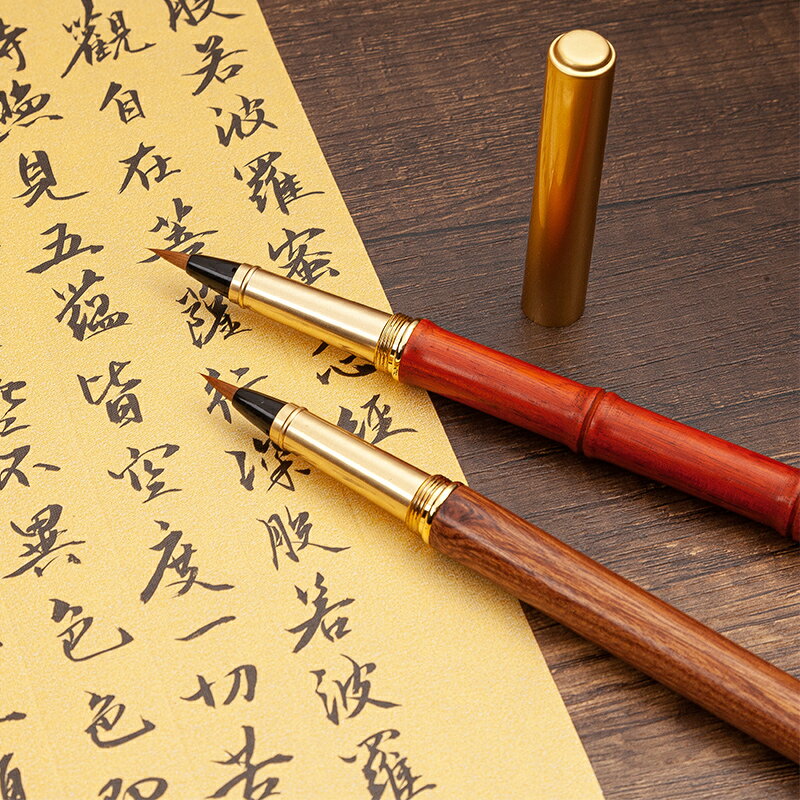 般若波羅蜜心經
觀自在菩薩行深般若波羅
時照見五蘊皆空度一切苦
空不異色色即